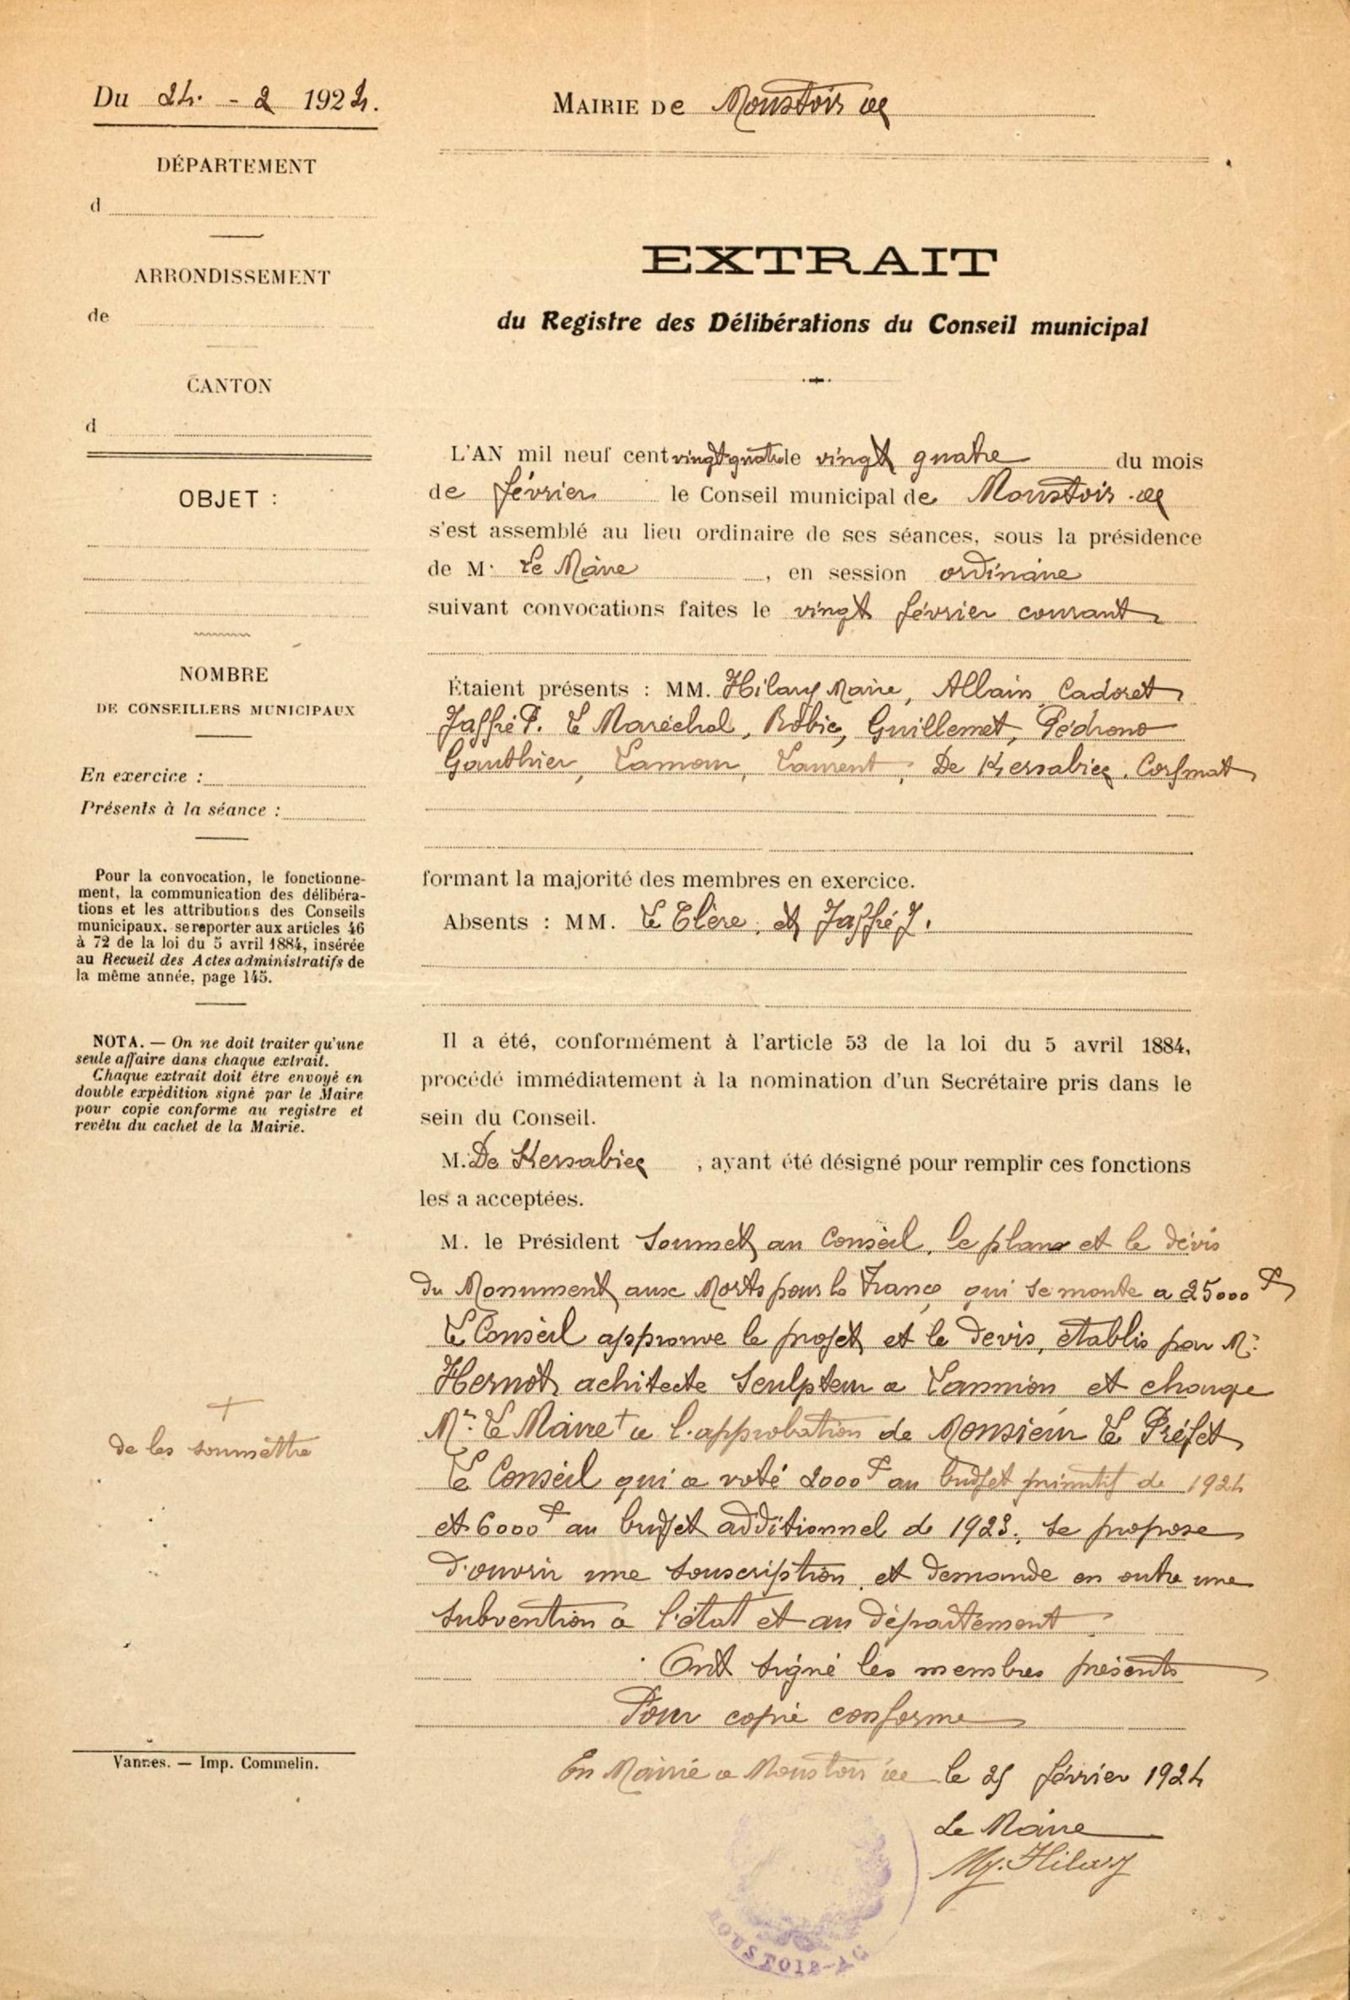 Du 24. - 2 1924.
DÉPARTEMENT
d
ARRONDISSEMENT
de
CANTON
d
OBJET :
NOMBRE
DE CONSEILLERS MUNICIPAUX
En exercice :
Présents à la séance :
Pour la convocation, le fonctionne-
ment, la communication des délibéra-
tions et les attributions des Conseils
municipaux, se reporter aux articles 46
à 72 de la loi du 5 avril 1884, insérée
au Recueil des Actes administratifs de
la même année, page 145.
NOTA. — On ne doit traiter qu'une
seule affaire dans chaque extrait.
Chaque extrait doit être envoyé en
double expédition signé par le Maire
pour copie conforme au registre et
revêtu du cachet de la Mairie.
+
de les soumettre
Vannes. — Imp. Commelin.
MAIRIE De Moustoir ac
EXTRAIT
du Registre des Délibérations du Conseil municipal
L'AN mil neuf cent vingt quatre le vingt quatre du mois
de février le Conseil municipal de Moustoir-ac
s'est assemblé au lieu ordinaire de ses séances, sous la présidence
de M. Le Maire, en session ordinaire
suivant convocations faites le vingt février courant
Étaient présents : MM. Hilary Maire, Allain, Cadoret
Jaffré P. Le Maréchal, Robic, Guillemet, Pédrono
Gauthier, Lamour, Laurent, De Kersabiec, Corfmat
formant la majorité des membres en exercice.
Absents : MM. Le Clère, et Jaffré J.
Il a été, conformément à l'article 53 de la loi du 5 avril 1884,
procédé immédiatement à la nomination d'un Secrétaire pris dans le
sein du Conseil.
M. De Kersabiec, ayant été désigné pour remplir ces fonctions
les a acceptées.
M. le Président soumet au Conseil, le plan et le devis
du Monument aux Morts pour la France, qui se monte a 25000 F
Le Conseil approuve le projet, et le devis, établis par Mr
Hernot achitecte Sculpteur a Lannion et charge
Mr. Le Maire + a l'approbation de Monsieur Le Préfet
Le Conseil qui a voté 2000 F au budjet primitif de 1924
et 6000 F au budjet additionnel de 1923, se propose
d'ouvrir une souscription, et demande en outre une
subvention a l'état et au département.
Ont signé les membres présents
Pour copie conforme
En Mairie a Moustoir ac le 25 février 1924
Le Maire
My. Hilary
MOUSTOIR-AC